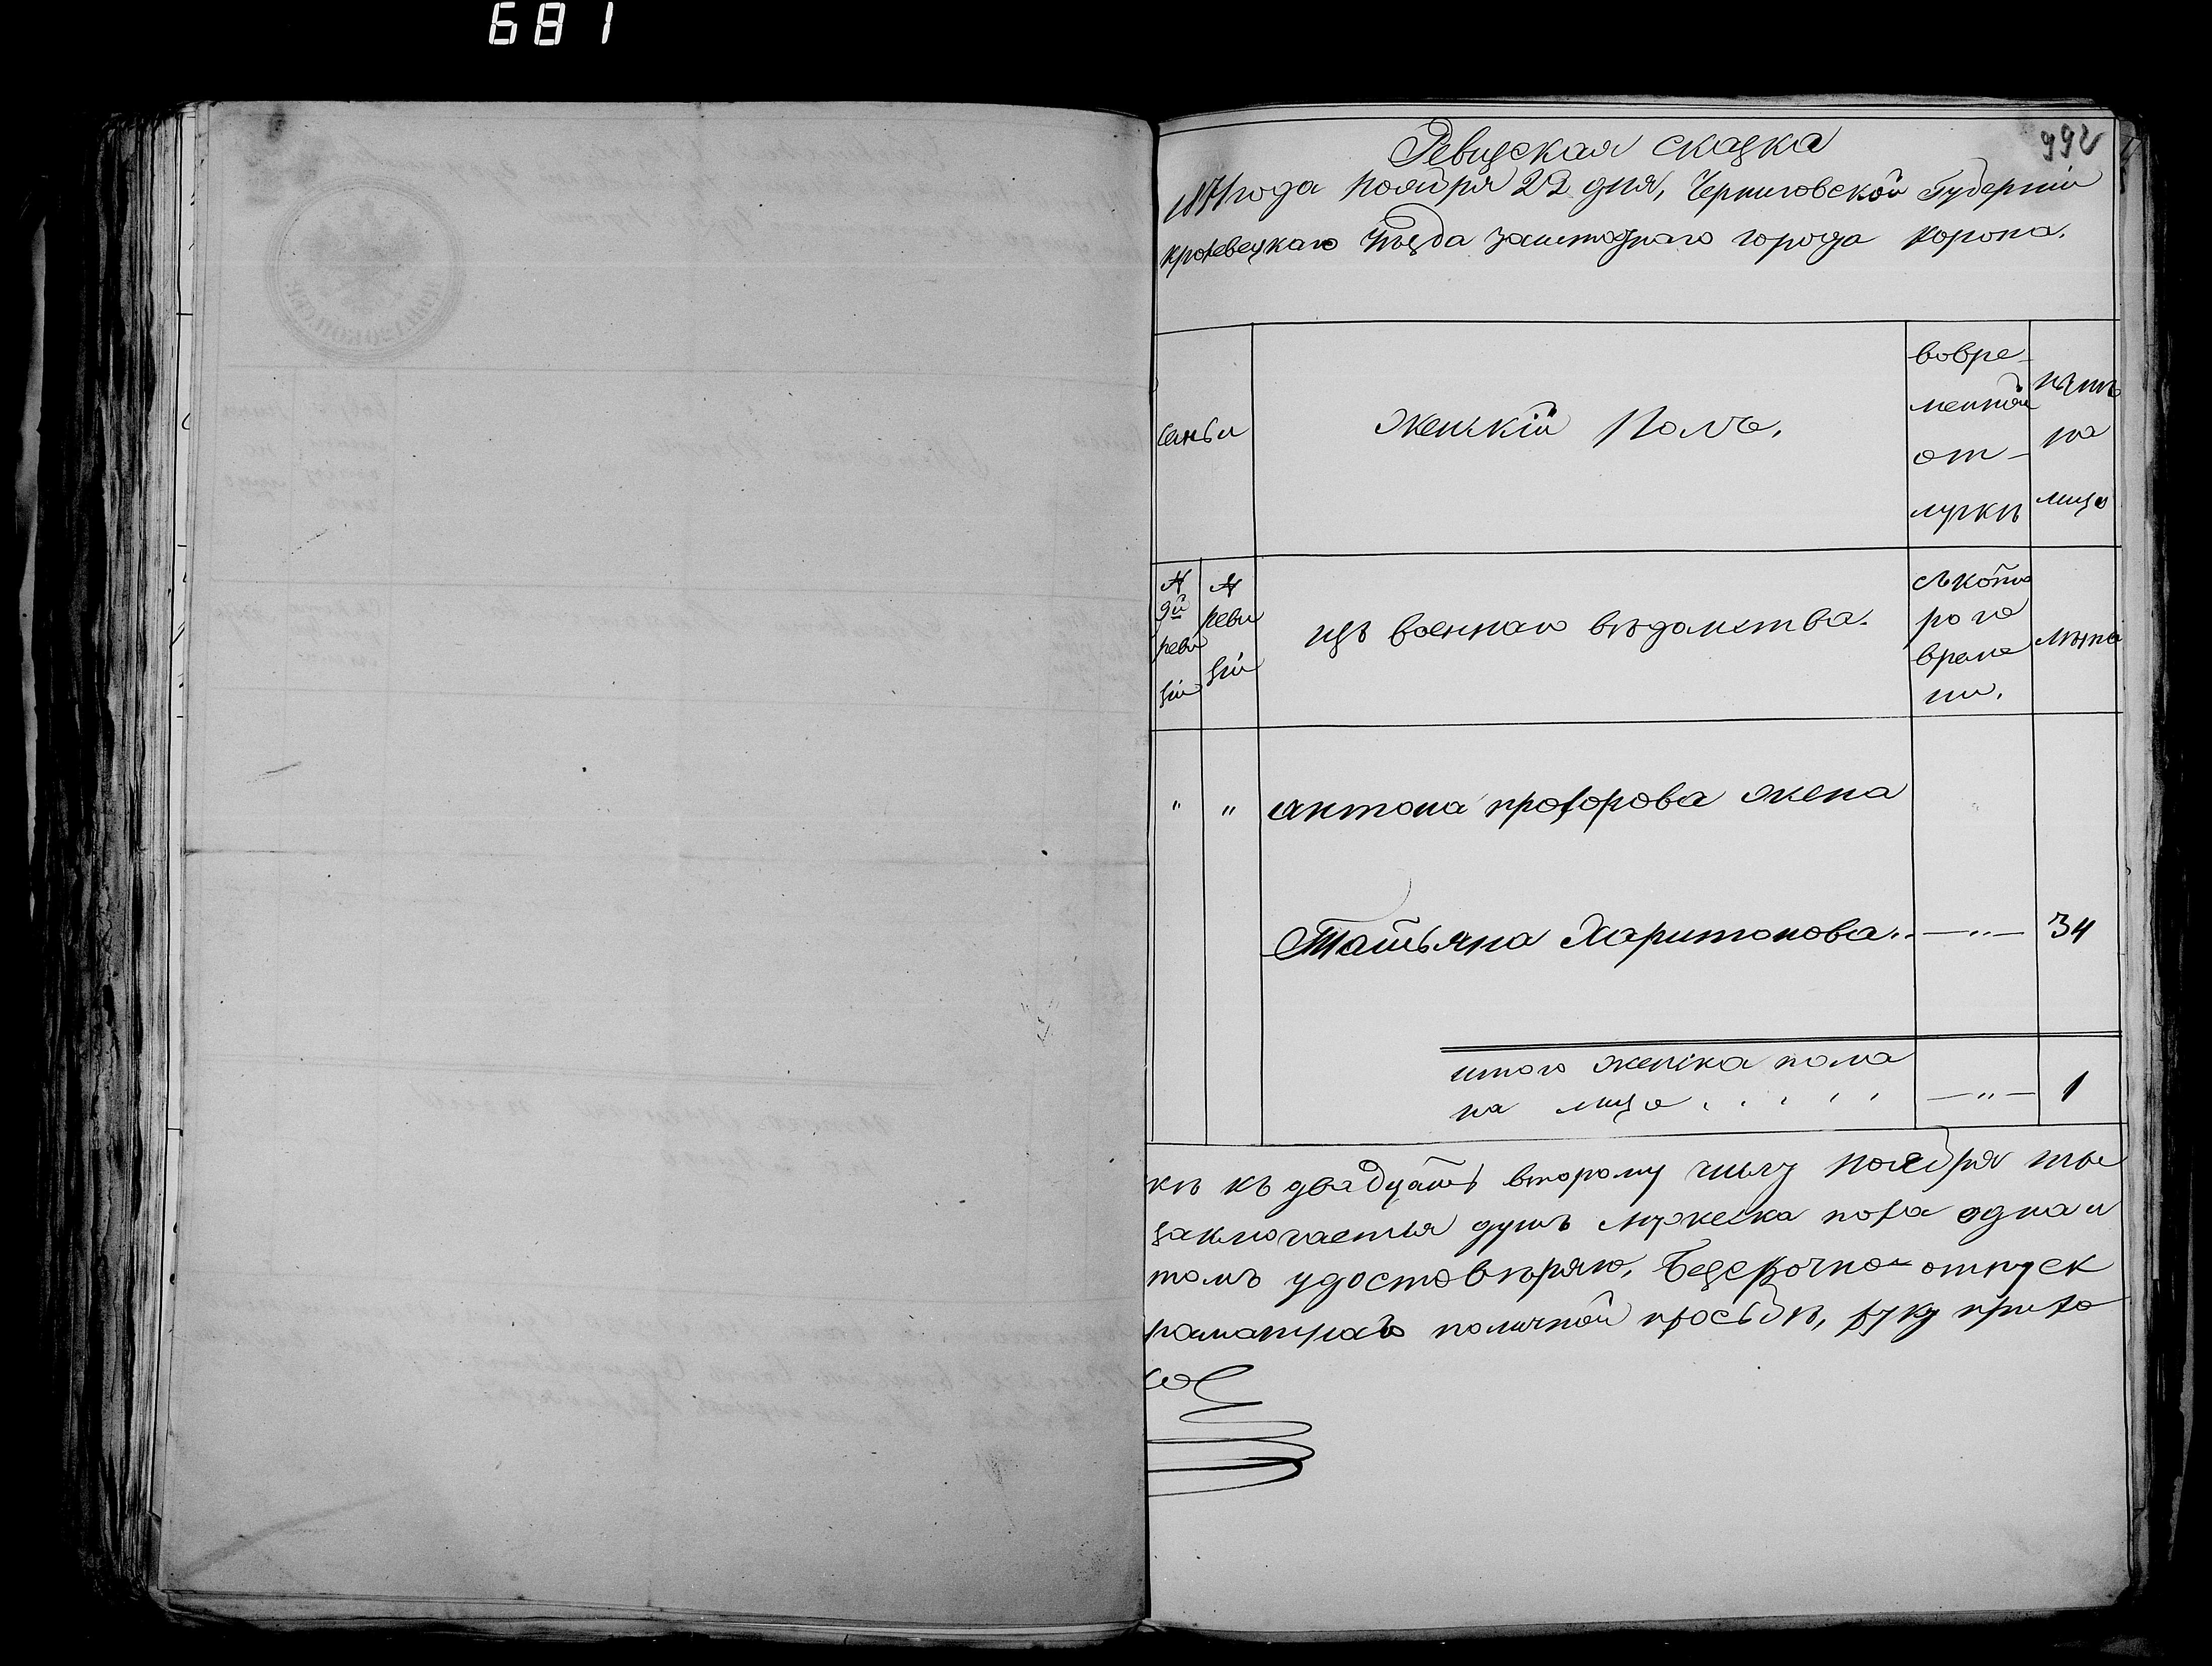 681
992
Ревизская сказка
1871 года ноября 22 дня, Черниговской Губерніи
кролевецкаго Уѣзда заштатнаго города Коропа.
семьи
Женскій Полъ.
вовре-
менной
от-
лучкѣ
нали
на
лицо
№
9й
реви
зіи
№
реви
зіи
изъ военнаго вѣдомства.
съкото
рого
време
ни.
лѣта
" " антона прохорова жена
Татьяна Харитонова.. —"— 34
итого женска пола
на лицо . . . . . —"— 1
кѣ къ двадцать второму числу ноября ты
заключается душъ мужеска пола одна и
томъ удостовѣряю, Безсрочно-отпуск
поличной просьбѣ, руку прило